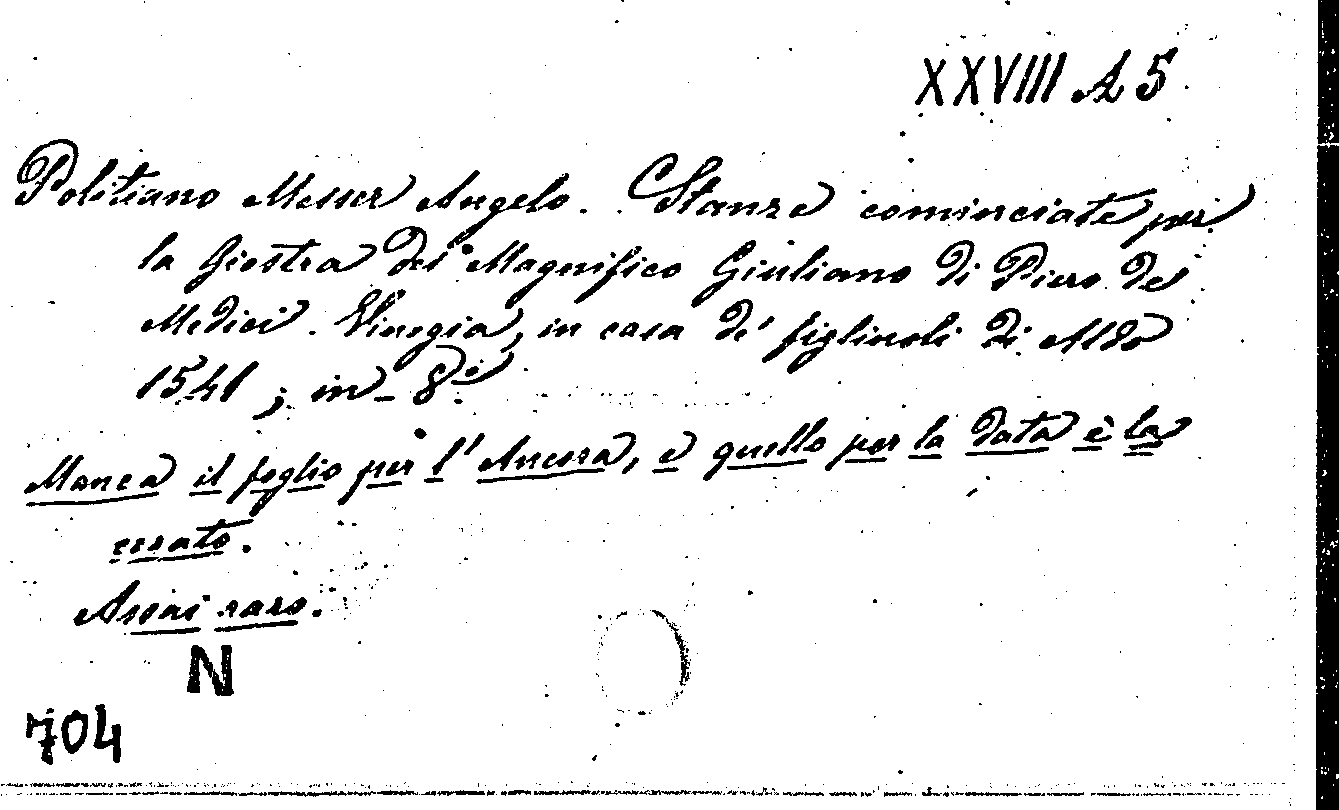 XXVIII A 5
Politiano Messer Angelo. Stanze cominciate per
la Giostra del Magnifico Giuliano di Piero de
Medici. Vinegia, in casa de' figliuoli di Aldo
1541; in-8.º
Manca il foglio per l'Ancora, e quello per la data è la
cerato.
Assai raro.
N
704